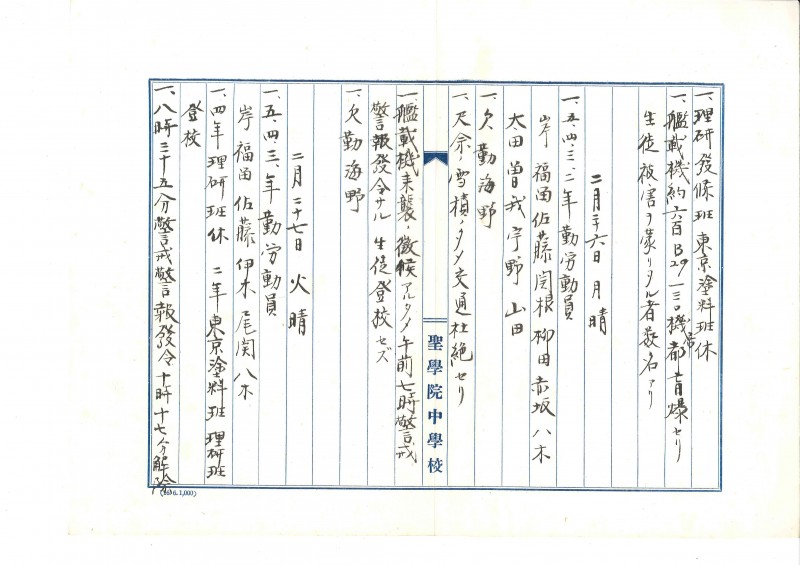 一、理研發條班 東京塗料班休
一、艦載機約六百B29一三〇機帝都盲爆セリ
生徒被害ヲ蒙リタル者数名アリ
二月二十六日 月 晴
一、五、四、三、二年勤労動員
岸 福田 佐藤 関根 柳田 赤坂 八木
太田 曽我 宇野 山田
一、欠勤 海野
一、尺余ノ雪積ノタメ交通杜絶セリ
聖學院中學校
一、艦載機来襲ノ徴候アルタメ午前七時警戒
警報發令サル 生徒登校セズ
一、欠勤 海野
二月二十七日 火 晴
一、五、四、三、年勤労動員
岸 福田 佐藤 伊木 尾関 八木
一、四年理研班休 二年東京塗料班 理研班
登校
一、八時三十五分警戒警報發令 十時十七分解除